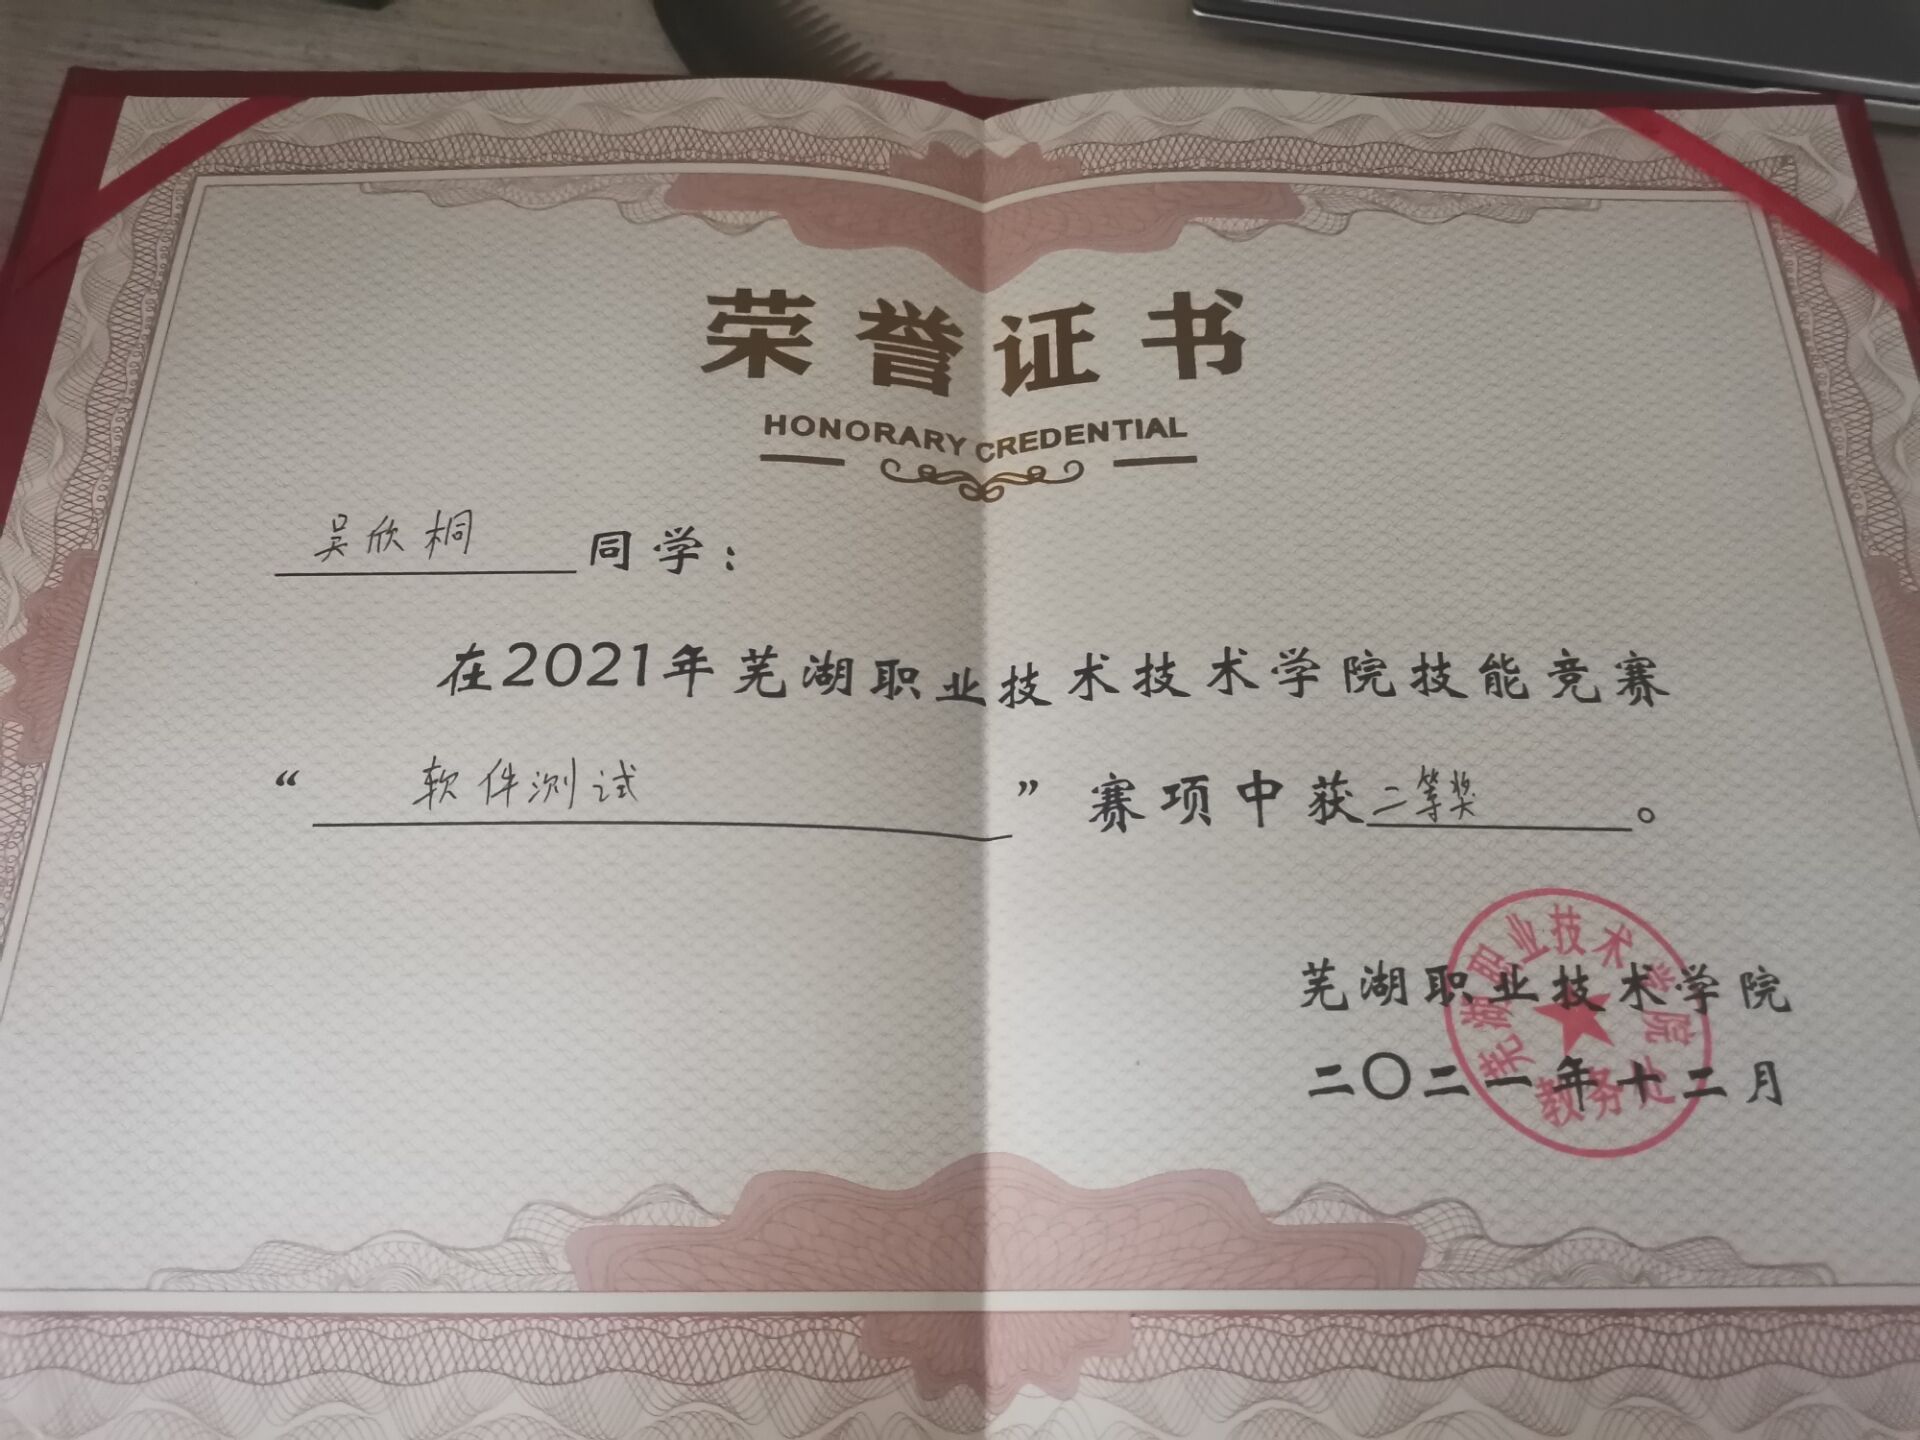 荣誉证书
HONORARY CREDENTIAL
吴欣桐同学：
在2021年芜湖职业技术技术学院技能竞赛
“软件测试”赛项中获二等奖。
芜湖职业技术学院
二〇二一年十二月
芜湖职业技术学院
教务处